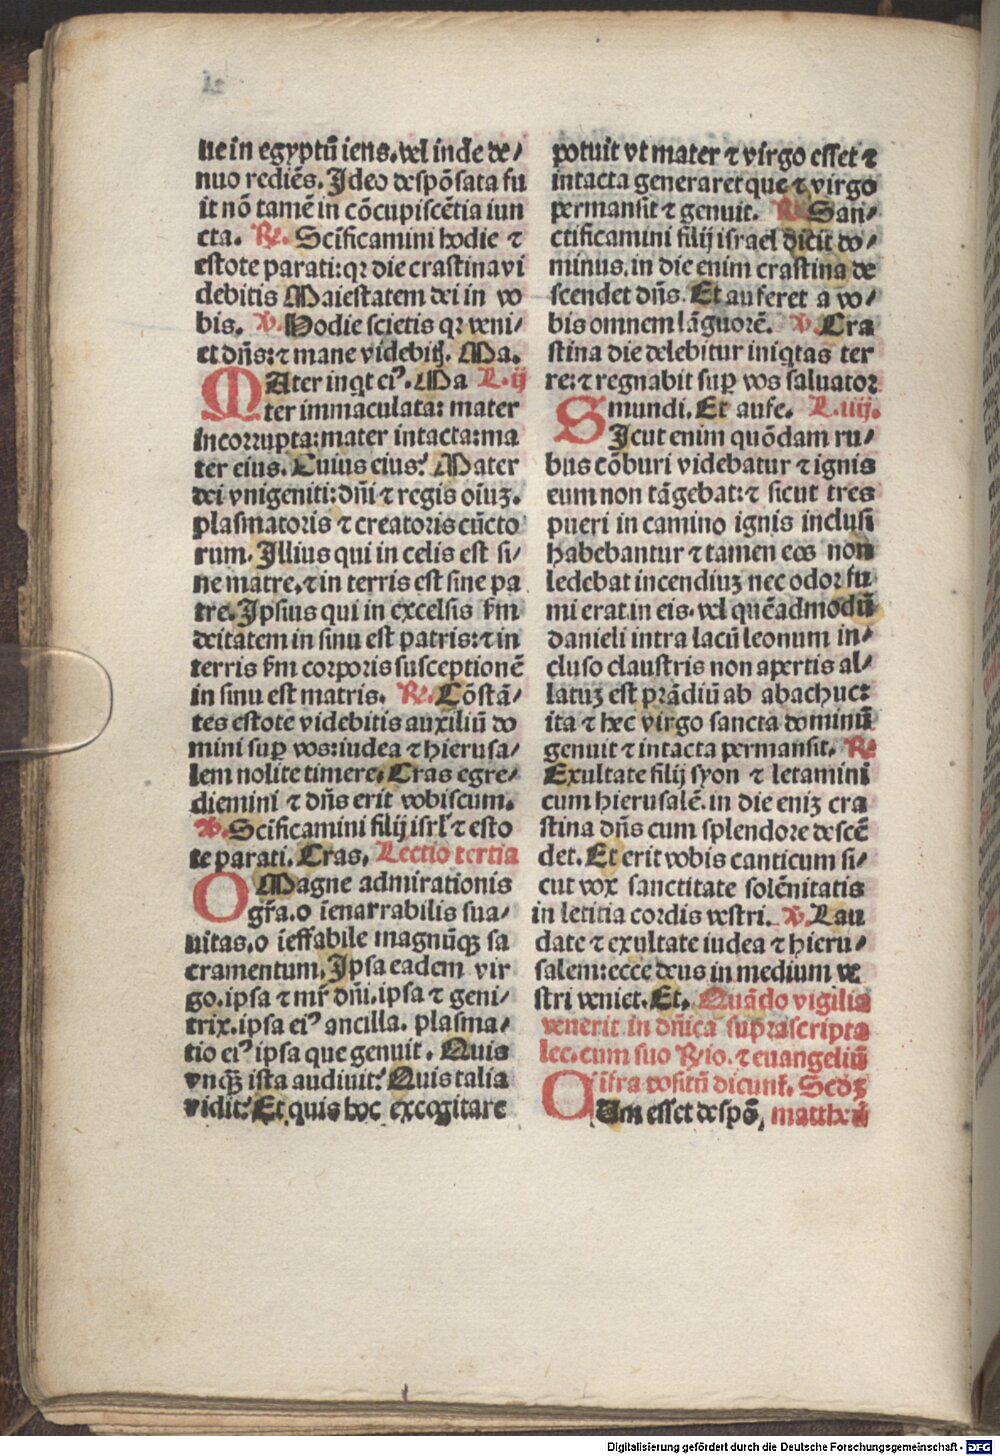 ue in egyptū iens. vel inde de/
nuo rediēs. Ideo despōsata fu
it nō tamē in cōcupiscētia iun
cta. ℟. Scīficamini hodie ⁊
estote parati: qꝛ die crastina vi
debitis Maiestatem dei in vo
bis. ℣. Hodie scietis qꝛ veni/
et dn̄s: ⁊ mane videbitꝭ. Ma.
MAter inqͥt eiꝰ. Ma L. ij
ter immaculata: mater
incorrupta: mater intacta: ma
ter eius. Cuius eius? Mater
dei vnigeniti: dn̄i ⁊ regis oīuꝫ.
plasmatoris ⁊ creatoris cūcto
rum. Illius qui in celis est si/
ne matre. ⁊ in terris est sine pa
tre. Ipsius qui in excelsis ẜm
deitatem in sinu est patris: ⁊ in
terris ẜm corporis susceptionē
in sinu est matris. ℟. Cōstā/
tes estote videbitis auxiliū do
mini suꝑ vos: iudea ⁊ hierusa/
lem nolite timere. Cras egre/
diemini ⁊ dn̄s erit vobiscum.
℣. Scīficamini filij isrl̓ ⁊ esto
te parati. Cras. Lectio tertia
O Magne admirationis
gr̄a. o īenarrabilis sua/
uitas. o īeffabile magnūqꝫ sa
cramentum. Ipsa eadem vir
go. ipsa ⁊ mr̄ dn̄i. ipsa ⁊ geni/
trix. ipsa eiꝰ ancilla. plasma/
tio eiꝰ ipsa que genuit. Quis
vnqꝫ̄ ista audiuit? Quis talia
vidit? Et quis hoc excogitare
potuit vt mater ⁊ virgo esset ⁊
intacta generaret que ⁊ virgo
permansit ⁊ genuit. ℟. San/
ctificamini filij israel dicit do/
minus. in die enim crastina de
scendet dn̄s. Et auferet a vo/
bis omnem lāguorē. ℣. Cra
stina die delebitur iniqͥtas ter
re: ⁊ regnabit suꝑ vos saluator
mundi. Et aufe. L. iiij.
SIcut enim quōdam ru/
bus cōburi videbatur ⁊ ignis
eum non tāgebat: ⁊ sicut tres
pueri in camino ignis inclusi
habebantur ⁊ tamen eos non
ledebat incendiuꝫ nec odor fu
mi erat in eis. vel quēadmodū
danieli intra lacū leonum in/
cluso claustris non apertis al/
latuꝫ est prādiū ab abachuc:
ita ⁊ hec virgo sancta dominū
genuit ⁊ intacta permansit. ℟.
Exultate filij syon ⁊ letamini
cum hierusalē. in die eniꝫ cra
stina dn̄s cum splendore descē
det. Et erit vobis canticum si/
cut vox sanctitate solēnitatis
in leticia cordis vestri. ℣. Lau
date ⁊ exultate iudea ⁊ hieru/
salem: ecce deus in medium ve
stri veniet. Et. Quādo vigilia
venerit in dn̄ica suprascripta
lec. cum suo ℟io. ⁊ euangeliū
īfra positū dicunt̄. Secdꝫ
CUm esset despō, matthei